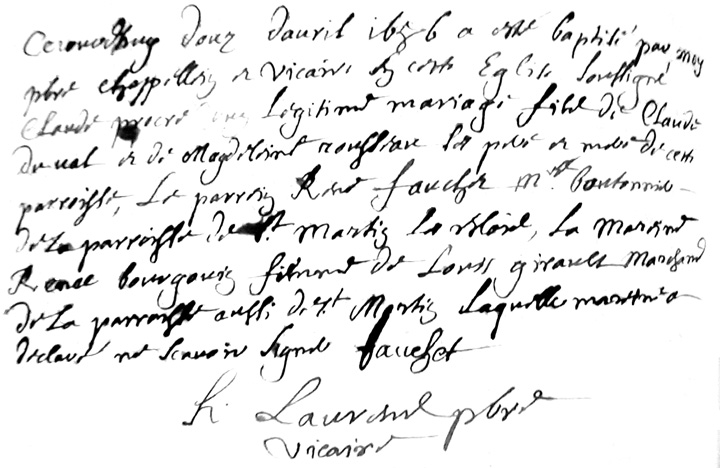 Ce
douz d'auril 1656 a esté baptisé par moy
pbre chappellain et Vicaire en ceste Eglise soussigné
Claude procré en légitime mariage fils de Claude
duual et de Magdelaine rousseau ses pere et mere de cette
parroisse, Le parrein René faucher Mre boutonnier
de La parroisse de St Martin La Maraine
Renee bourgouin femme de Louis girault Marchand
de La parroisse aussi de St Martin Laquelle maraine a
declaré ne scauoir signer faucher
Laurent pbre
Vicaire